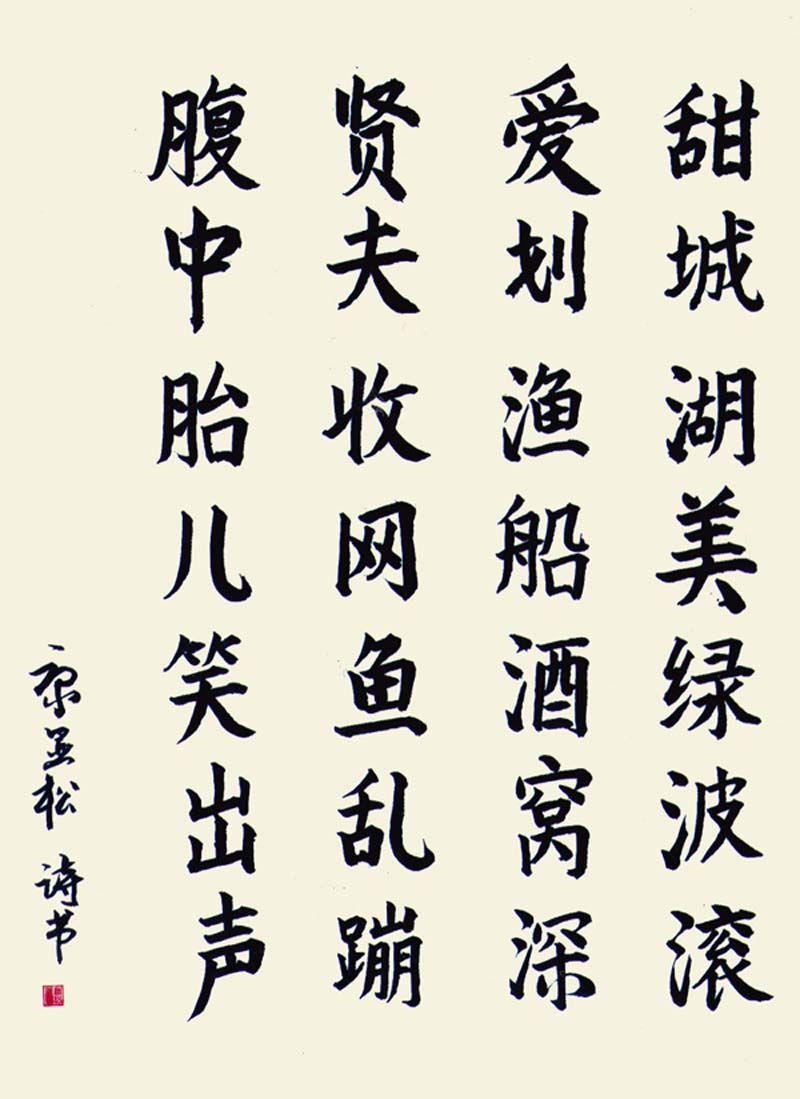 甜城湖美绿波滚
爱划渔船酒窝深
贤夫收网鱼乱蹦
腹中胎儿笑出声
松 诗书